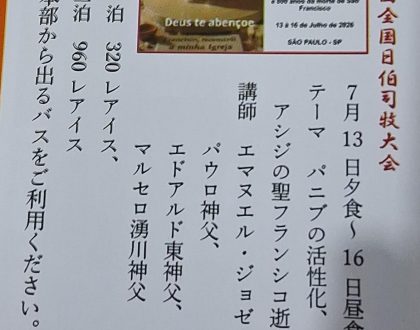 全国日伯司牧大会
7月13日夕食〜16日昼食
テーマ パニブの活性化、
アシジの聖フランシコ逝
講師 エマヌエル・ジョゼ
パウロ神父、
エドアルド東神父、
マルセロ湧川神父
Deus te abençoe
a minha Igreja
a 800 anos da morte de São
Francisco
13 à 16 de Julho de 2026
SÃO PAULO - SP
泊 320レアイス、
泊 960レアイス
本部から出るバスをご利用ください。